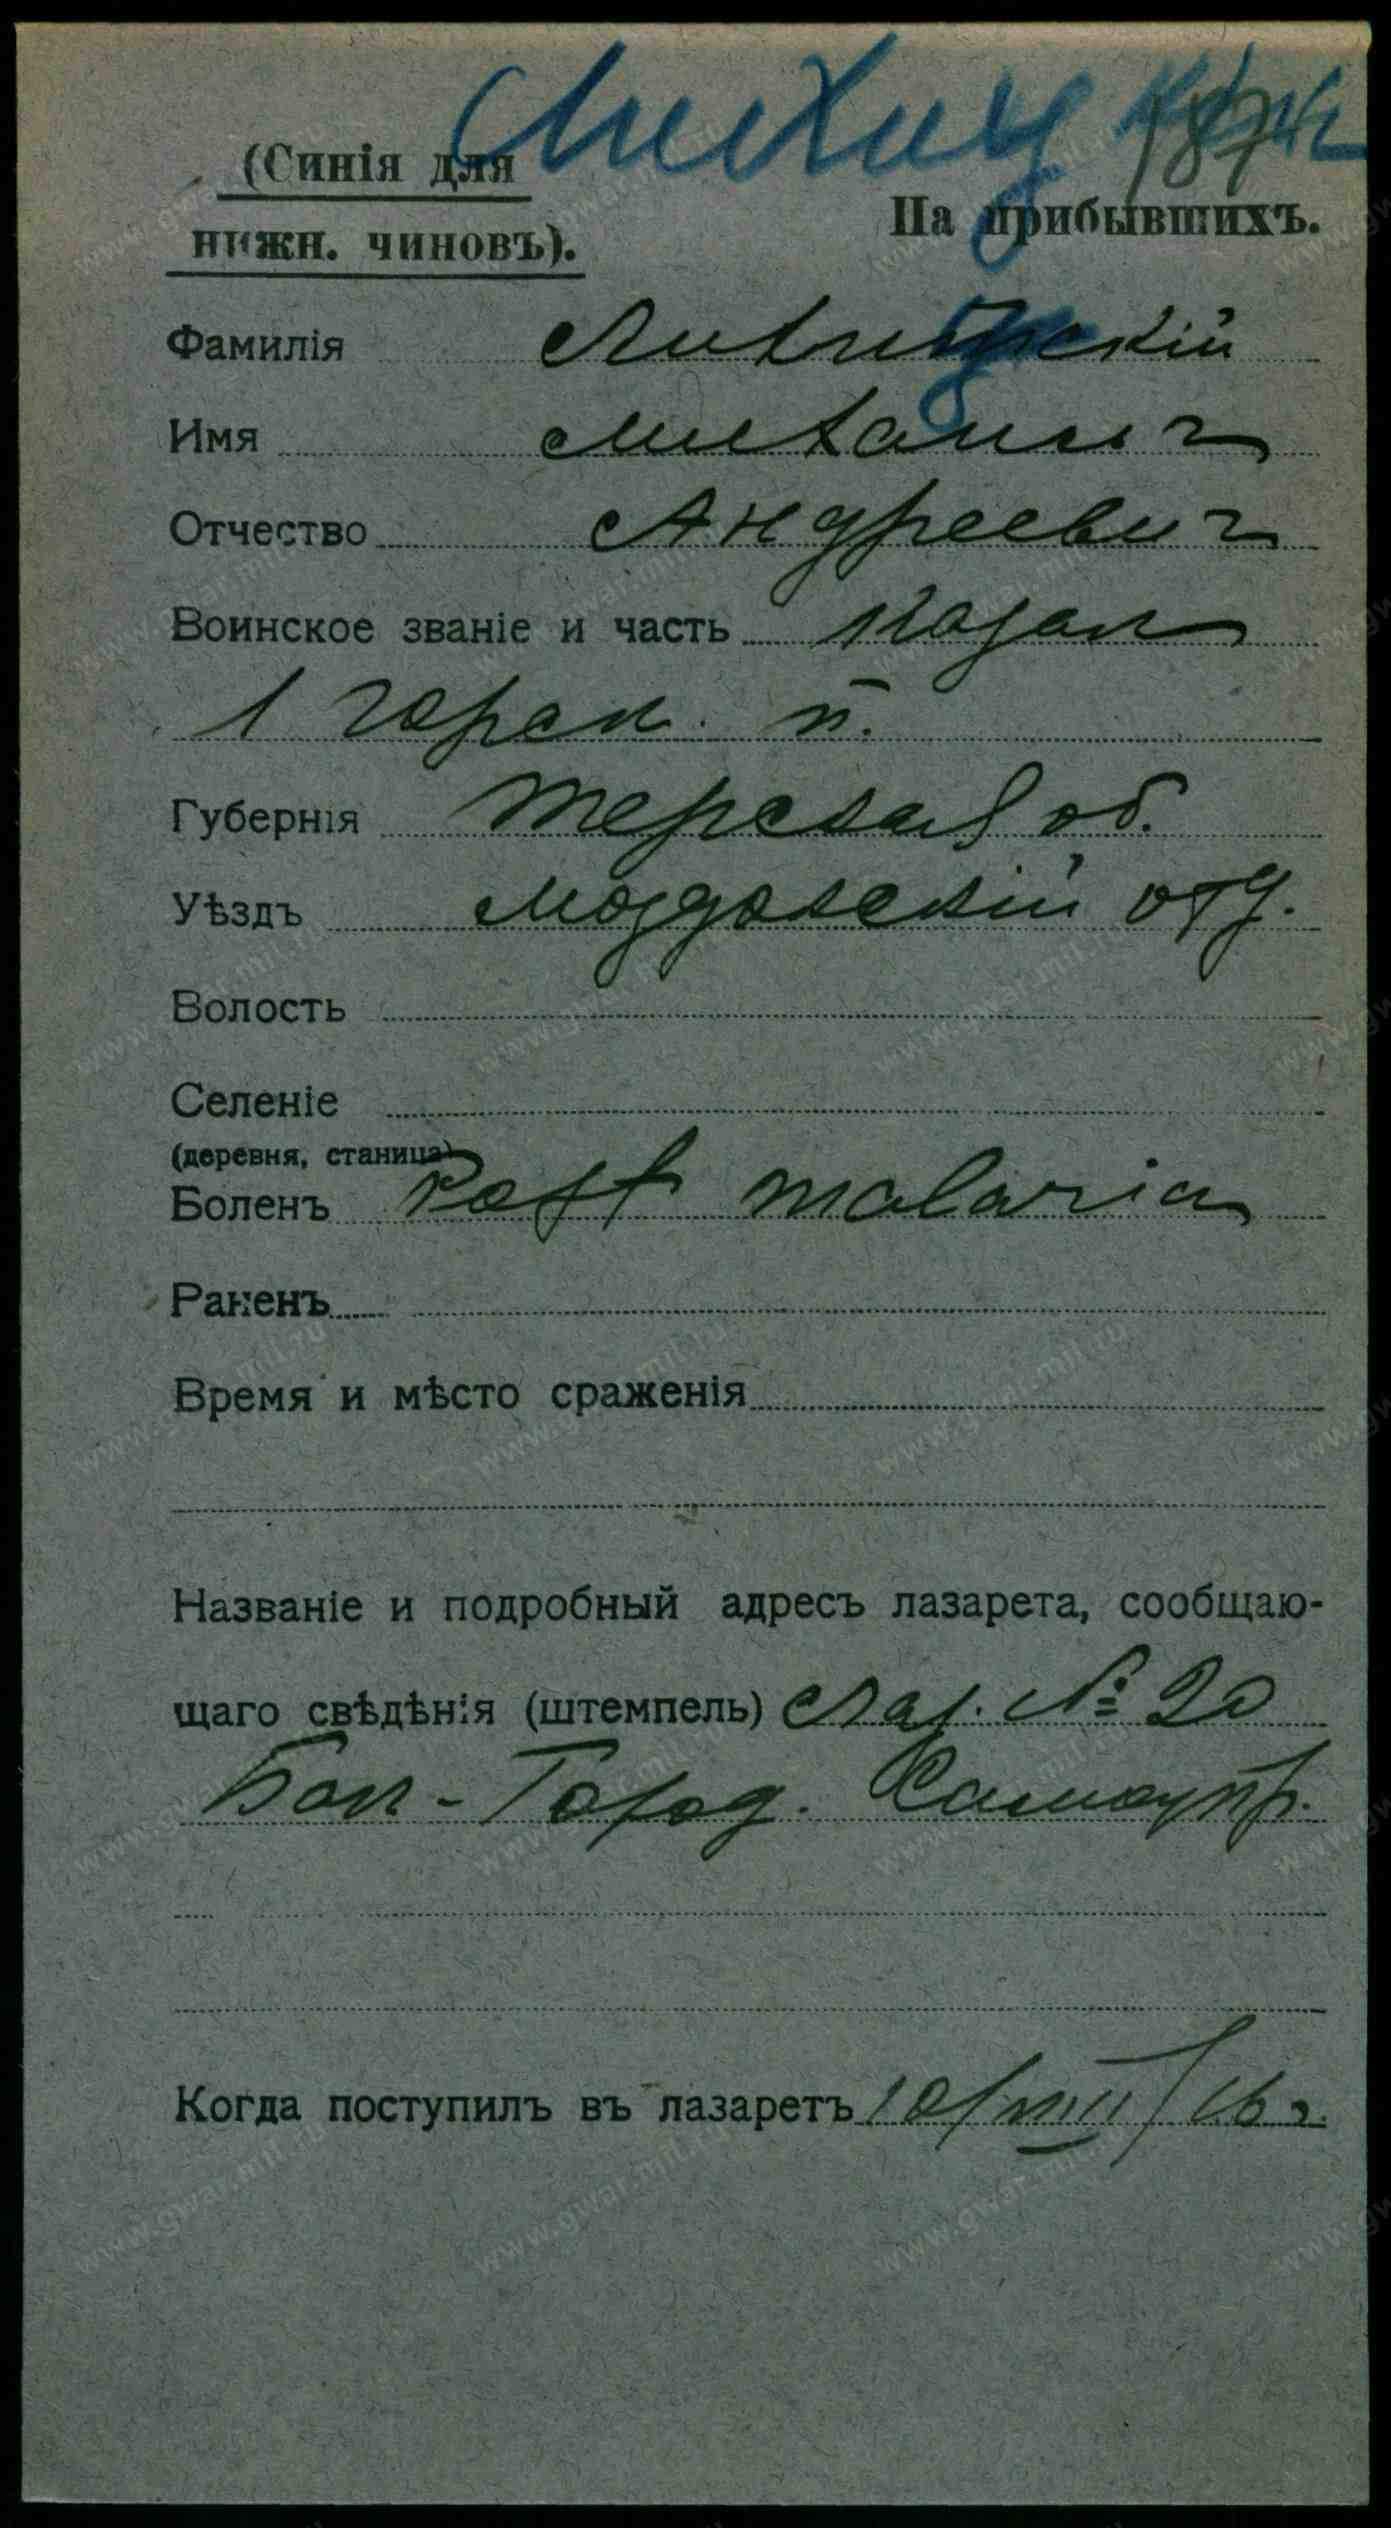 (Синія для
нижн. чиновъ).
На прибывшихъ.
Фамилія
Имя Михаилъ
Отчество Андреевич
Воинское званіе и часть Козак
1 горск. п.
Губернія Терская об.
Уѣздъ Моздокскій отд.
Волость
Селеніе
(деревня, станица)
Боленъ Post malaria
Раненъ
Время и мѣсто сраженія
Названіе и подробный адресъ лазарета, сообщаю-
щаго свѣдѣнія (штемпель) Лаз. № 20
Бак- Город. Самоупр.
Когда поступилъ въ лазаретъ 10/VIII/16 г.
www.gwar.mil.ru